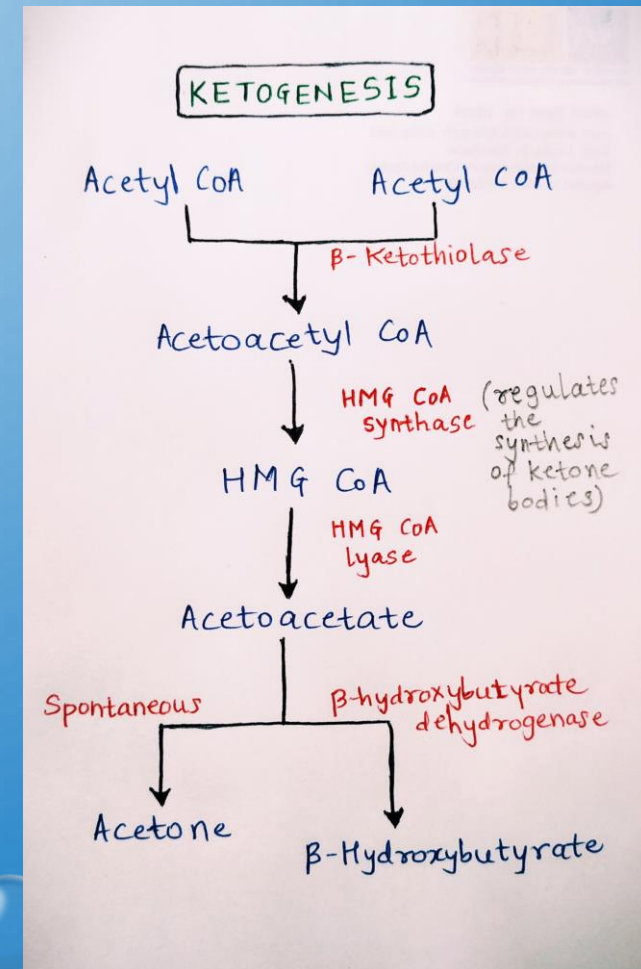 KETOGENESIS
Acetyl CoA Acetyl CoA
β-Ketothiolase
Acetoacetyl CoA
HMG CoA (regulates
synthase the
synthesis
of ketone
bodies)
HMG CoA
HMG CoA
lyase
Acetoacetate
Spontaneous β-hydroxybutyrate
dehydrogenase
Acetone
β-Hydroxybutyrate